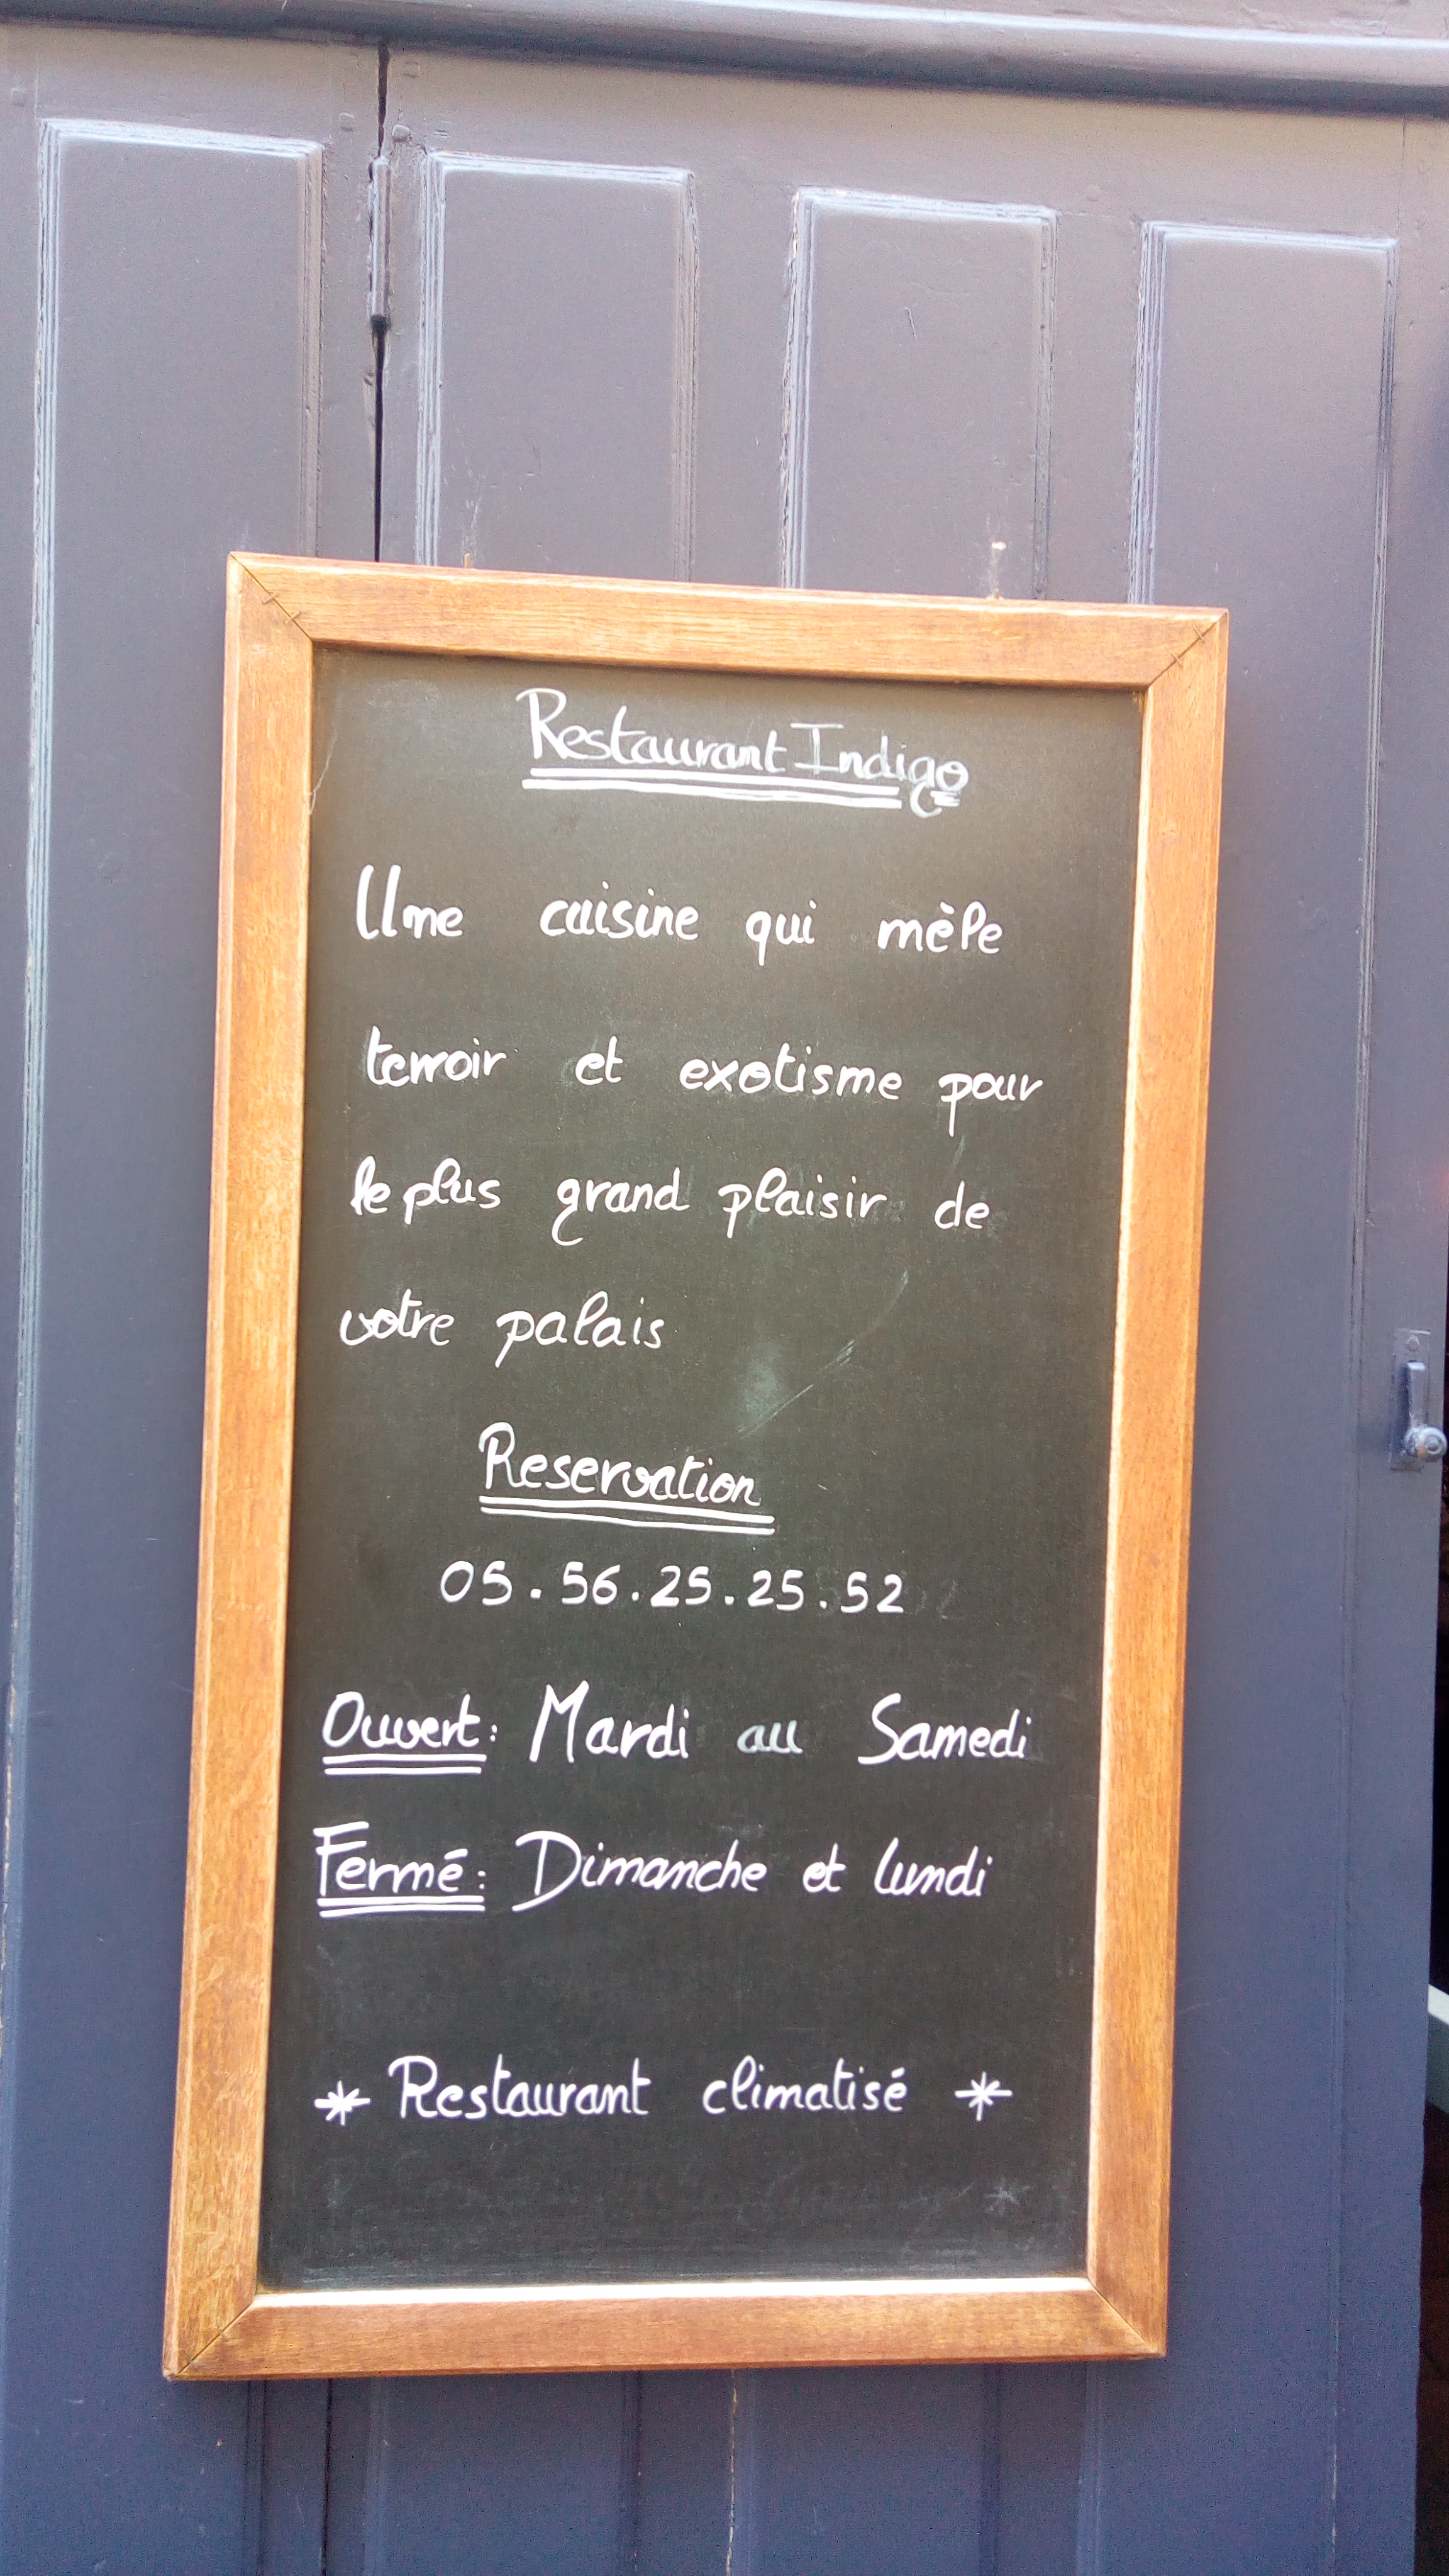 Restaurant Indigo
Une cuisine qui mèle
terroir et exotisme pour
le plus grand plaisir de
votre palais
Reservation
05.56.25.25.52
Ouvert: Mardi au Samedi
Fermé: Dimanche et lundi
* Restaurant climatisé *